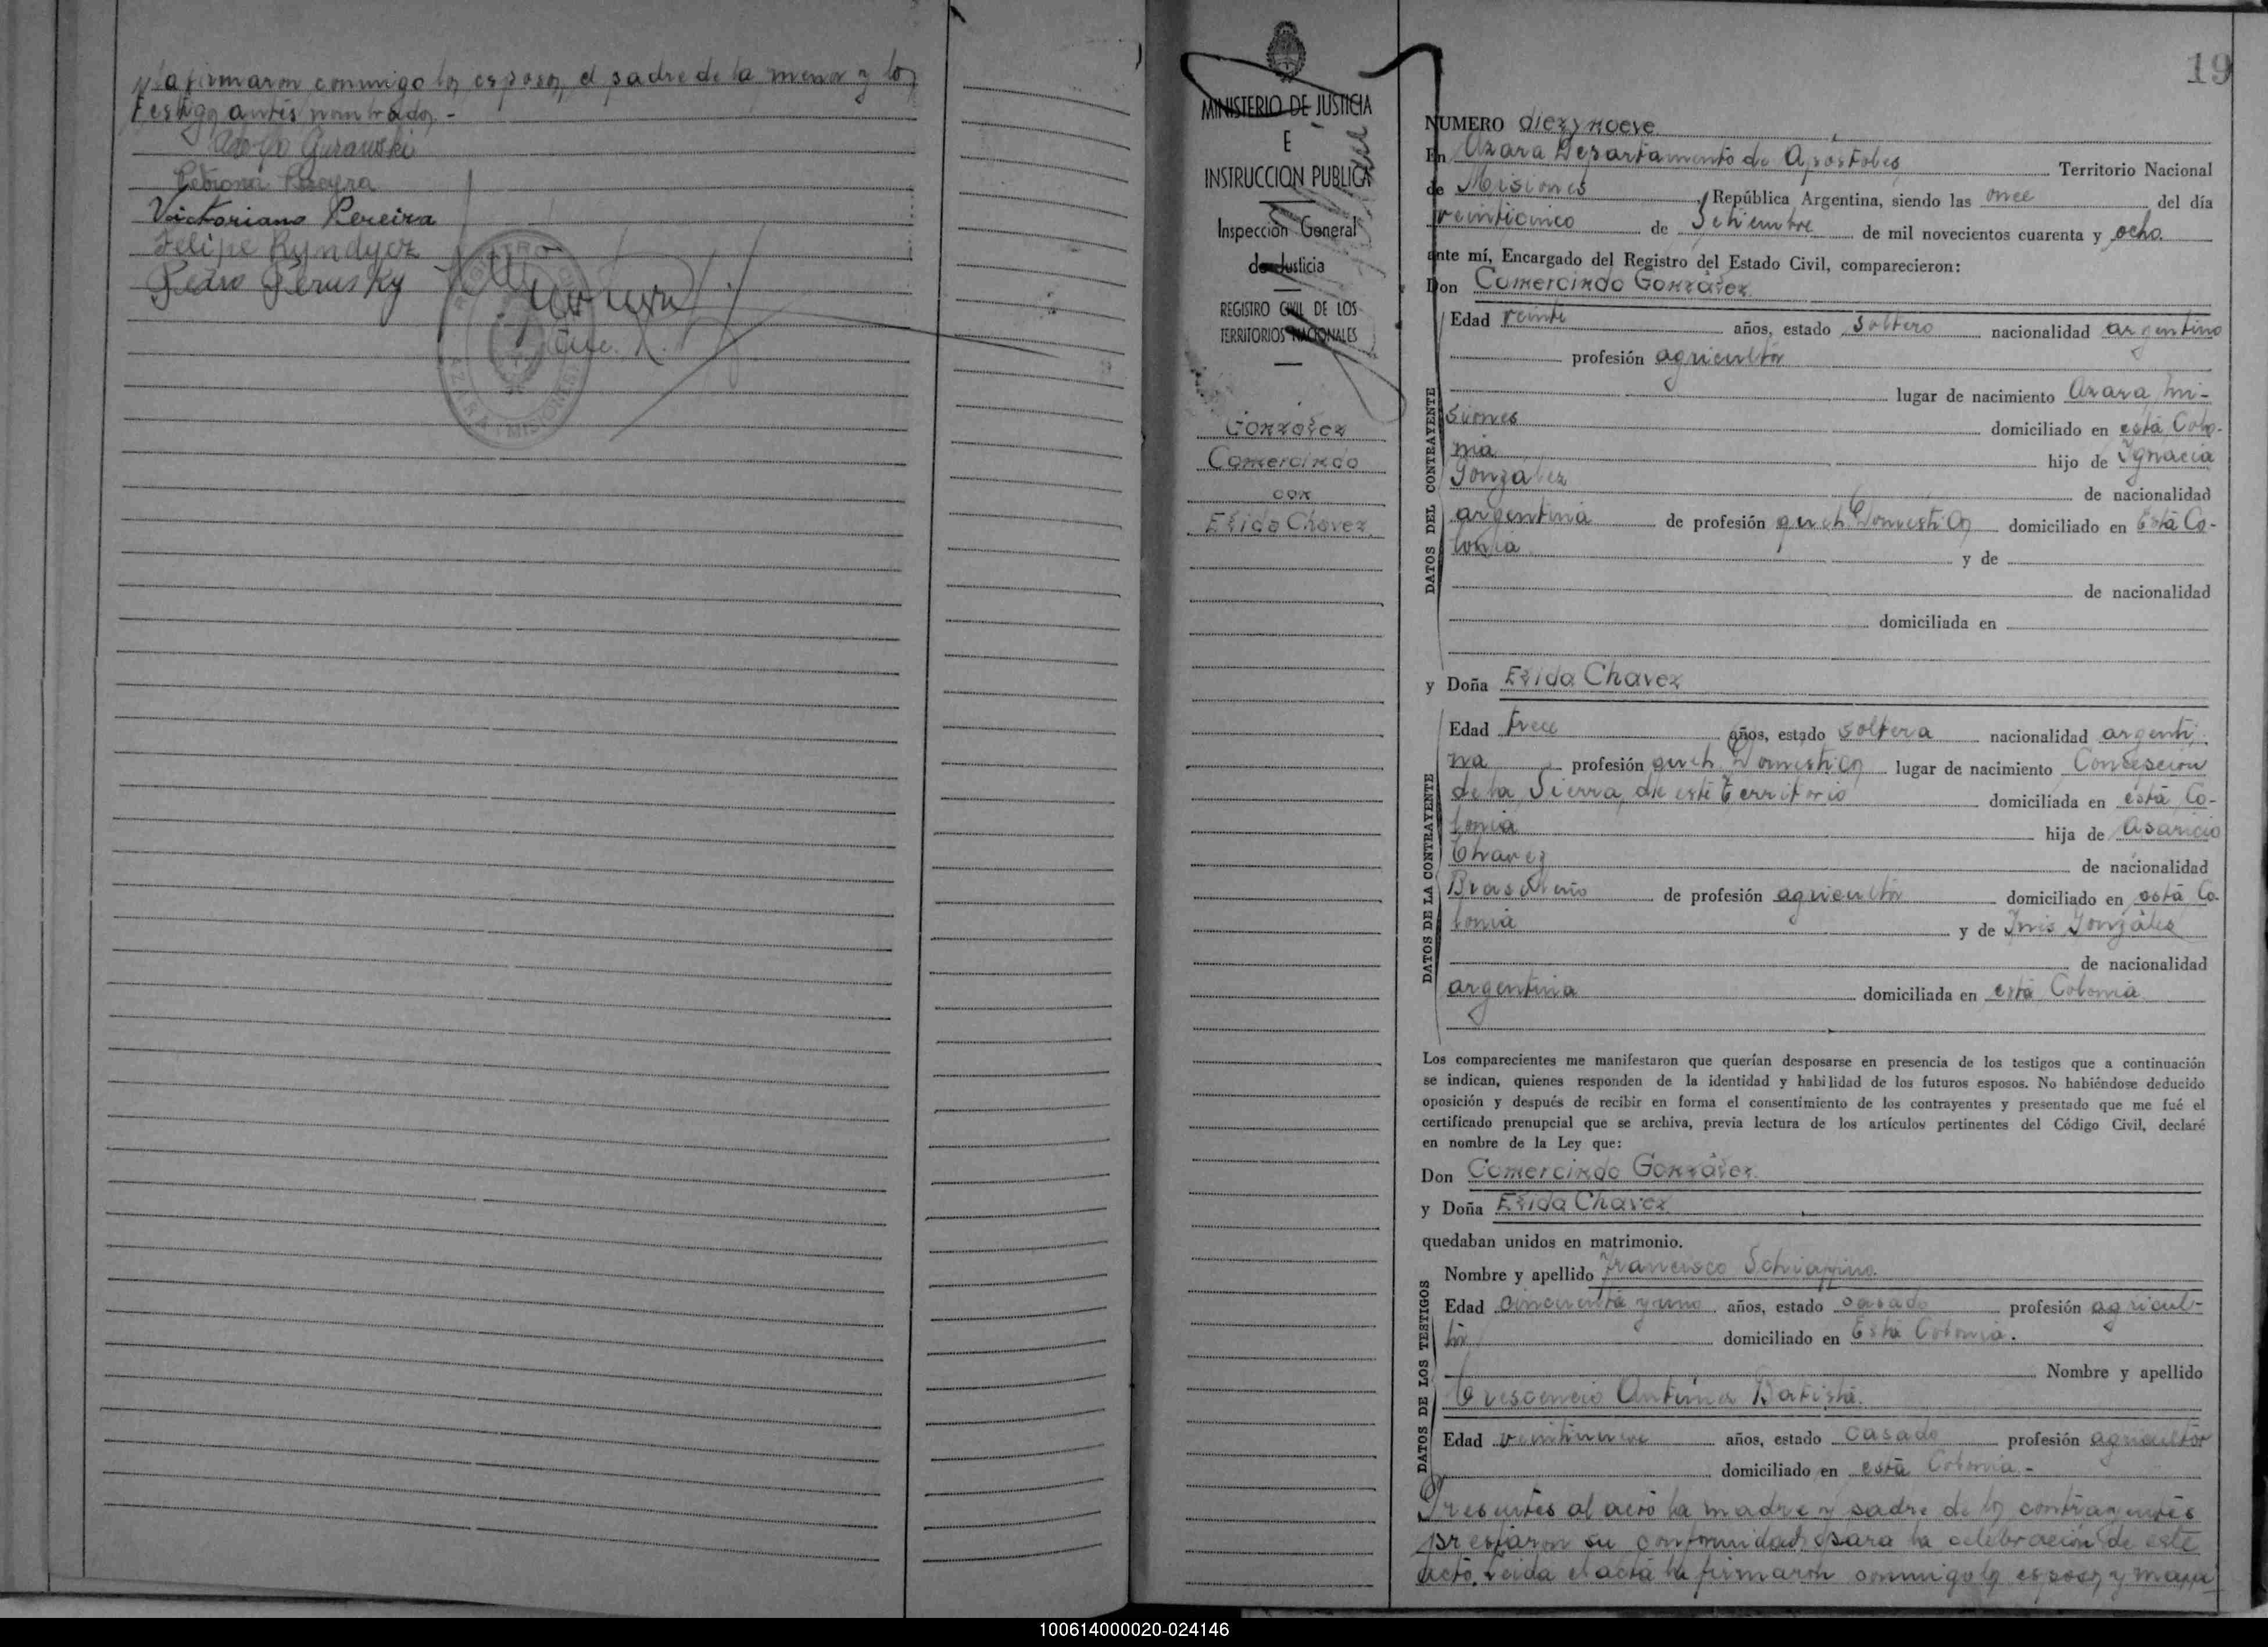 la firmaron conmigo los esposos, el padre de la menor y los
testigos antes nombrados.-
Adolfo Gurawski
Petrona Pereyra
Victoriano Pereira
Felipe Kyndycz
Pedro Perusky
19
MINISTERIO DE JUSTICIA
E
INSTRUCCION PUBLICA
Inspección General
de Justicia
REGISTRO CIVIL DE LOS
TERRITORIOS NACIONALES
González
Comercindo
con
Elida Chavez
NUMERO diez y nueve
En Azara Departamento de Apóstoles Territorio Nacional
de Misiones, República Argentina, siendo las once del día
veinticinco de Setiembre de mil novecientos cuarenta y ocho.
ante mí, Encargado del Registro del Estado Civil, comparecieron:
Don Comercindo González
DATOS DEL CONTRAYENTE
Edad veinte años, estado soltero nacionalidad argentino
profesión agricultor
lugar de nacimiento Azara, Mi-
siones domiciliado en esta Colo-
nia hijo de Ignacia
González de nacionalidad
argentina de profesión queh. Domésticos domiciliado en Esta Co-
lonia y de
de nacionalidad
domiciliada en
y Doña Elida Chavez
DATOS DE LA CONTRAYENTE
Edad trece años, estado soltera nacionalidad argenti-
na profesión queh. Domésticos lugar de nacimiento Consepción
de la Sierra, de este Territorio domiciliada en esta Co-
lonia hija de
Chavez de nacionalidad
Brasileño de profesión agricultor domiciliado en esta Co-
lonia y de Inés González
de nacionalidad
argentina domiciliada en esta Colonia
Los comparecientes me manifestaron que querían desposarse en presencia de los testigos que a continuación
se indican, quienes responden de la identidad y habilidad de los futuros esposos. No habiéndose deducido
oposición y después de recibir en forma el consentimiento de los contrayentes y presentado que me fué el
certificado prenupcial que se archiva, previa lectura de los artículos pertinentes del Código Civil, declaré
en nombre de la Ley que:
Don Comercindo González
y Doña Elida Chavez
quedaban unidos en matrimonio.
DATOS DE LOS TESTIGOS
Nombre y apellido Francisco Schiappino.
Edad cincuenta y uno años, estado casado profesión agricul-
tor domiciliado en Esta Colonia.
Nombre y apellido
Crescencio Antúna Batista.
Edad veintinueve años, estado casado profesión agricultor
domiciliado en esta Colonia.-
Presentes al acto la madre y padre de los contrayentes
prestaron su conformidad para la celebración de este
acto. Leida el acta la firmaron conmigo los esposos y
100614000020-024146